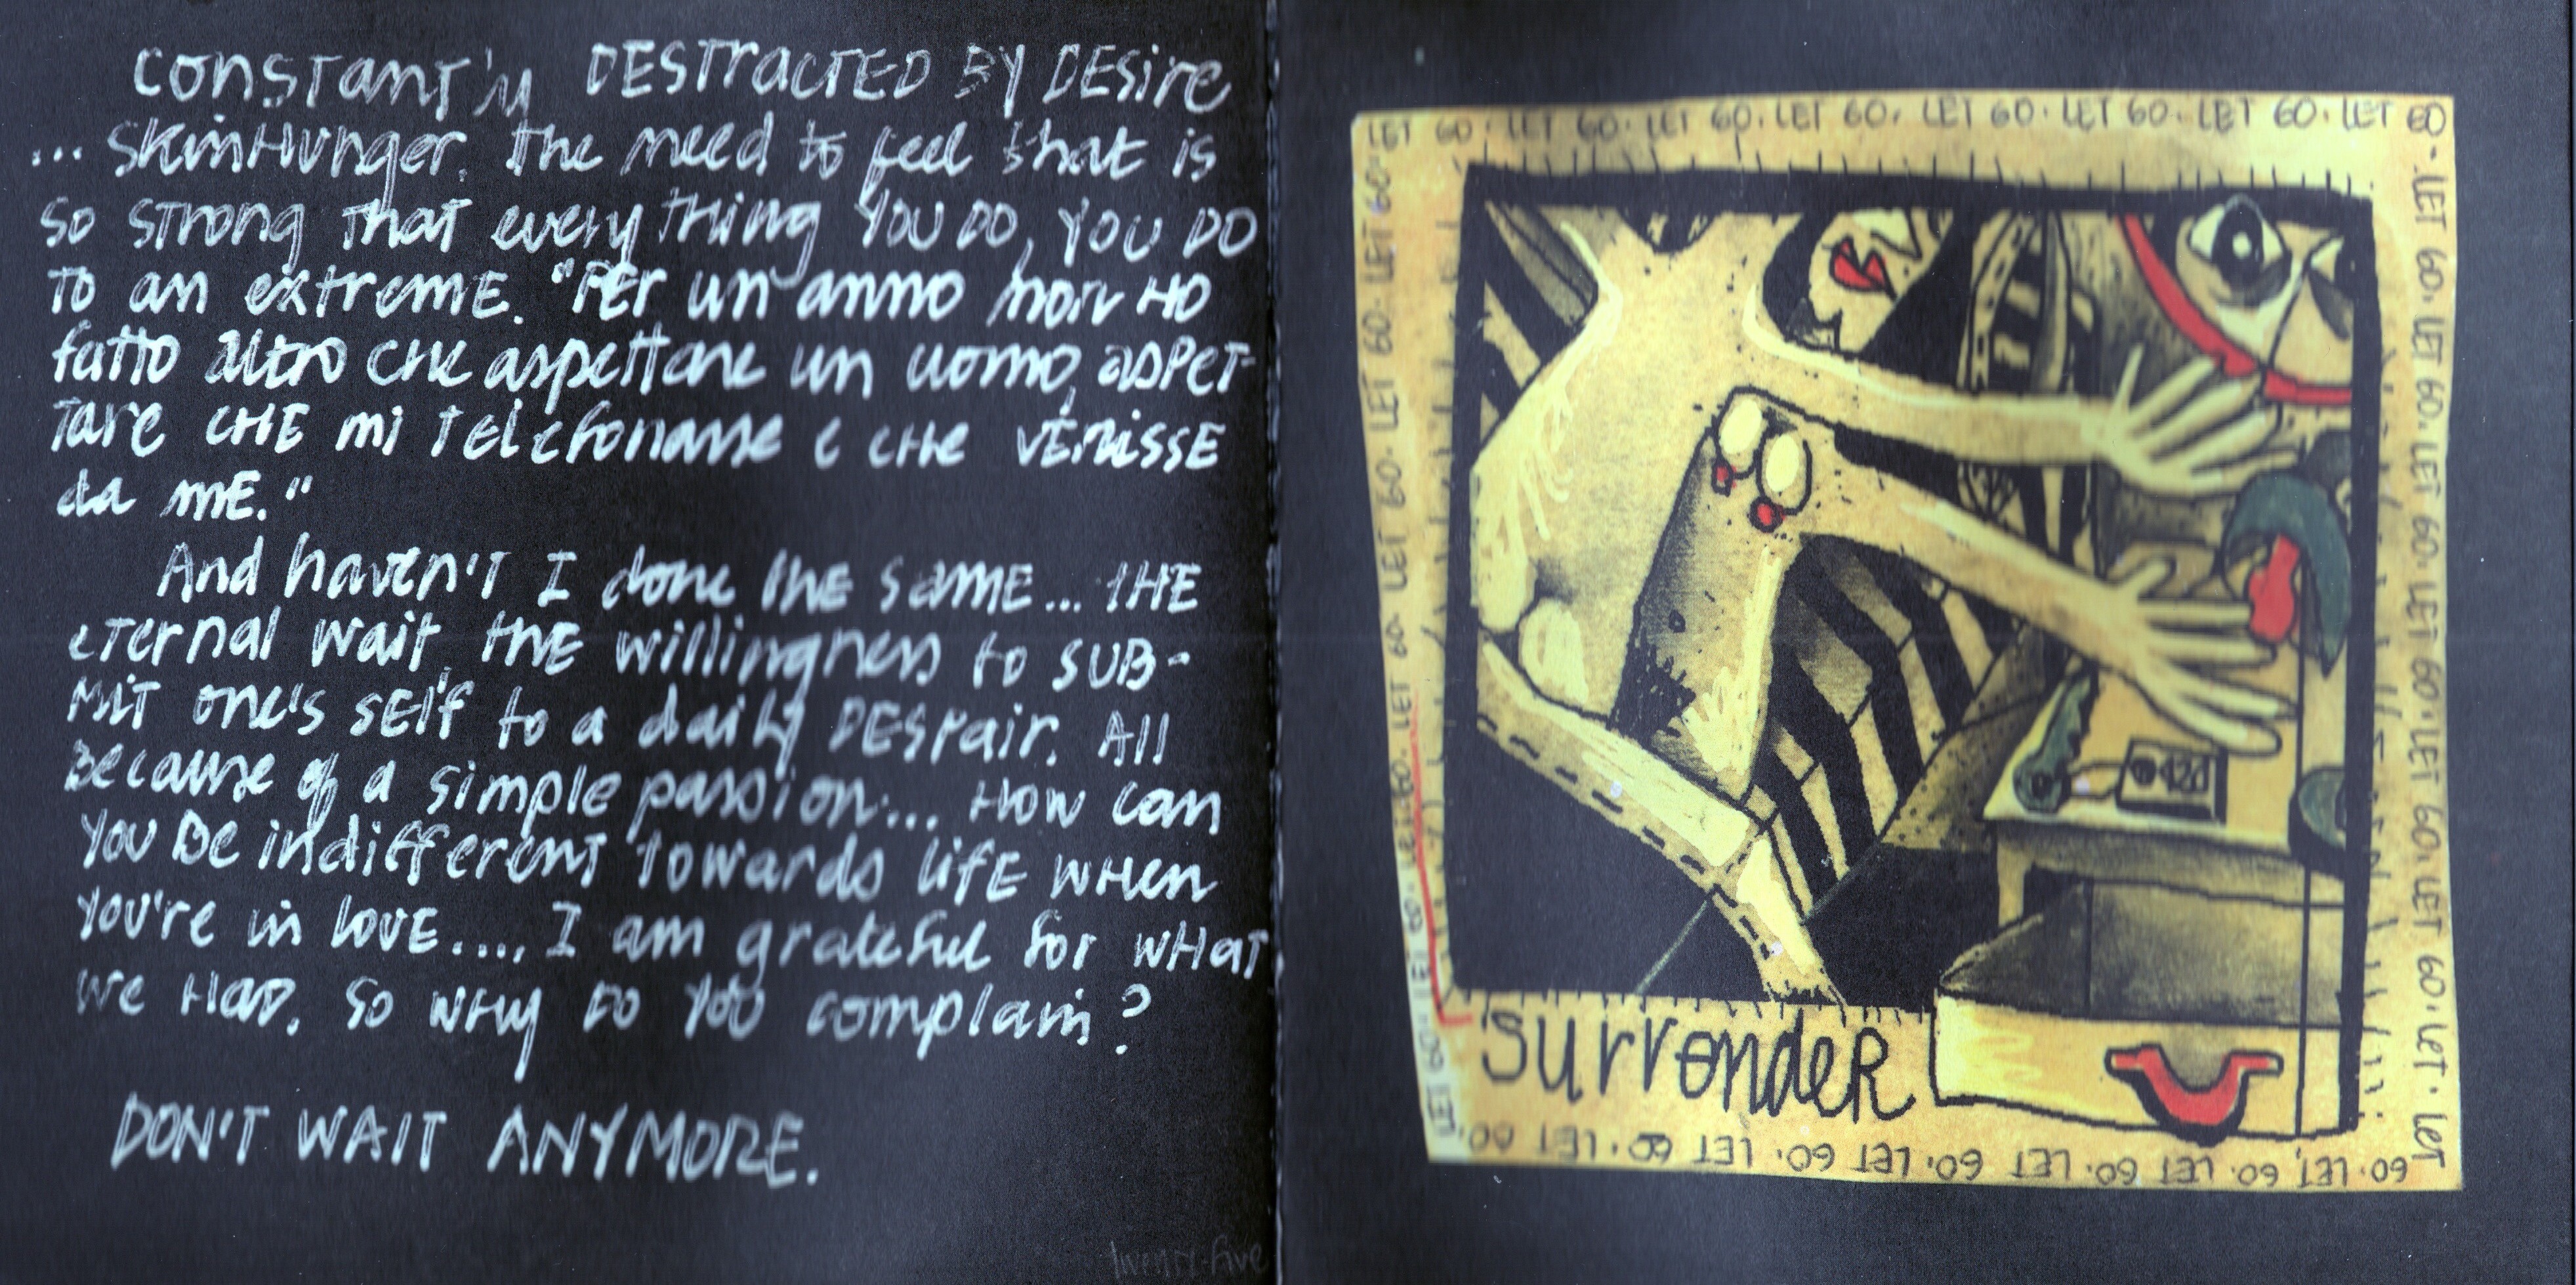 constantly DESTracTED BY DEsire
... SkinHunger. the need to feel that is
so strong that everything YOU DO, YOU DO
TO an extremE. "PEr un anno non HO
fatto altro che aspettare un uomo, aspet-
tare CHE mi telefonasse e che vEnisse
da mE."
And haven't I done the same... tHE
eternal wait. the willingness to SUB-
mit one's self to a daily DEspair. All
Because of a simple passion... How can
you be indifferent towards lifE when
you're in lovE...., I am grateful for wHat
we Had. So wHy DO you complain?
DON'T WAIT ANYMORE.
twenty-five
LET GO. LET GO. LET GO. LET GO. LET GO. LET GO. LET GO. LET GO
LET GO. LET GO. LET GO. LET GO. LET GO. LET GO. LET GO. LET
SurrendeR
GO. LET GO. LET GO. LET GO. LET GO. LET GO. LET GO.